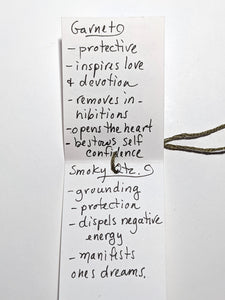 Garnet
- protective
- inspires love
& devotion
- removes in-
hibitions
- opens the heart
- bestows self
confidence
Smoky Qtz.
- grounding
- protection
- dispels negative
energy
- manifests
ones dreams.